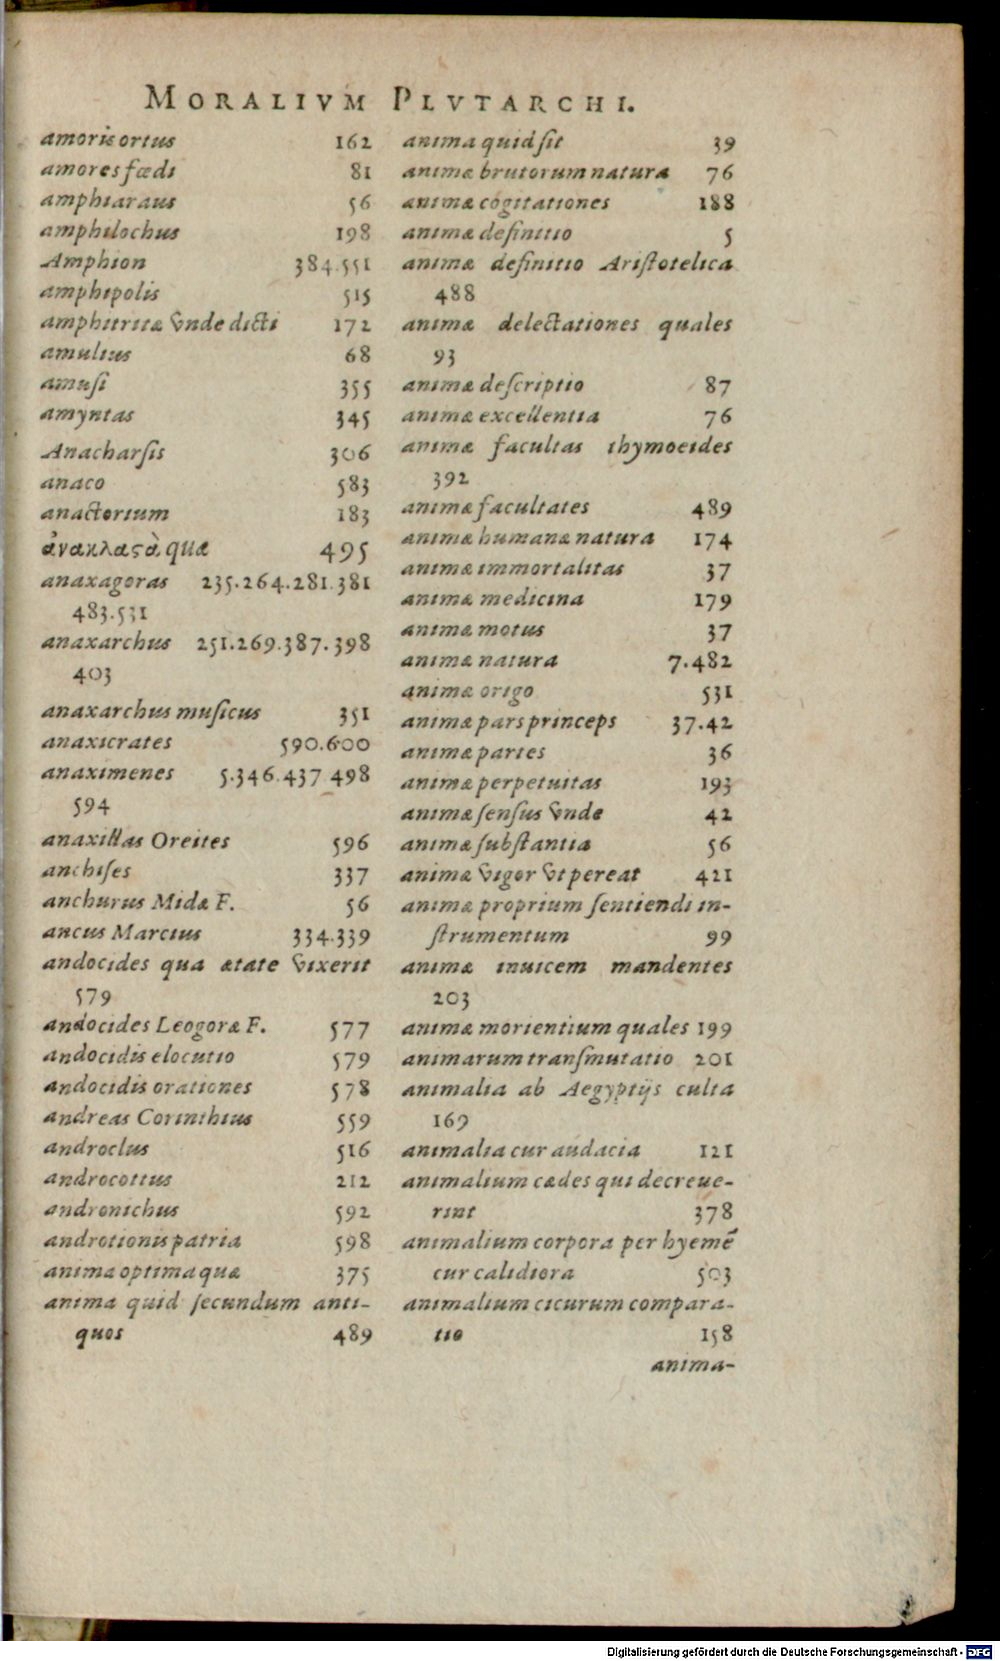 MORALIVM PLVTARCHI.
amoris ortus 162
amores fœdi 81
amphiaraus 56
amphilochus 198
Amphion 384.551
amphipolis 515
amphitritæ vnde dicti 172
amulius 68
amusi 355
amyntas 345
Anacharsis 306
anaco 583
anactorium 183
ἀνακλαςὰ quæ 495
anaxagoras 235.264.281.381
483.531
anaxarchus 251.269.387.398
403
anaxarchus musicus 351
anaxicrates 590.600
anaximenes 5.346.437.498
594
anaxillas Oreites 596
anchises 337
anchurus Midæ F. 56
ancus Marcius 334.339
andocides qua ætate vixerit
579
andocides Leogoræ F. 577
andocidis elocutio 579
andocidis orationes 578
andreas Corinthius 559
androclus 516
androcottus 212
andronichus 592
androtionis patria 598
anima optima quæ 375
anima quid secundum anti-
quos 489
anima quid sit 39
animæ brutorum natura 76
animæ cogitationes 188
animæ definitio 5
animæ definitio Aristotelica
488
animæ delectationes quales
93
animæ descriptio 87
animæ excellentia 76
animæ facultas thymoeides
392
animæ facultates 489
animæ humanæ natura 174
animæ immortalitas 37
animæ medicina 179
animæ motus 37
animæ natura 7.482
animæ origo 531
animæ pars princeps 37.42
animæ partes 36
animæ perpetuitas 193
animæ sensus vnde 42
animæ substantia 56
animæ vigor vt pereat 421
animæ proprium sentiendi in-
strumentum 99
animæ inuicem mandentes
203
animæ morientium quales 199
animarum transmutatio 201
animalia ab Aegyptijs culta
169
animalia cur audacia 121
animalium cædes qui decreue-
rint 378
animalium corpora per hyemē
cur calidiora 503
animalium cicurum compara-
tio 158
anima-
Digitalisierung gefördert durch die Deutsche Forschungsgemeinschaft - DFG